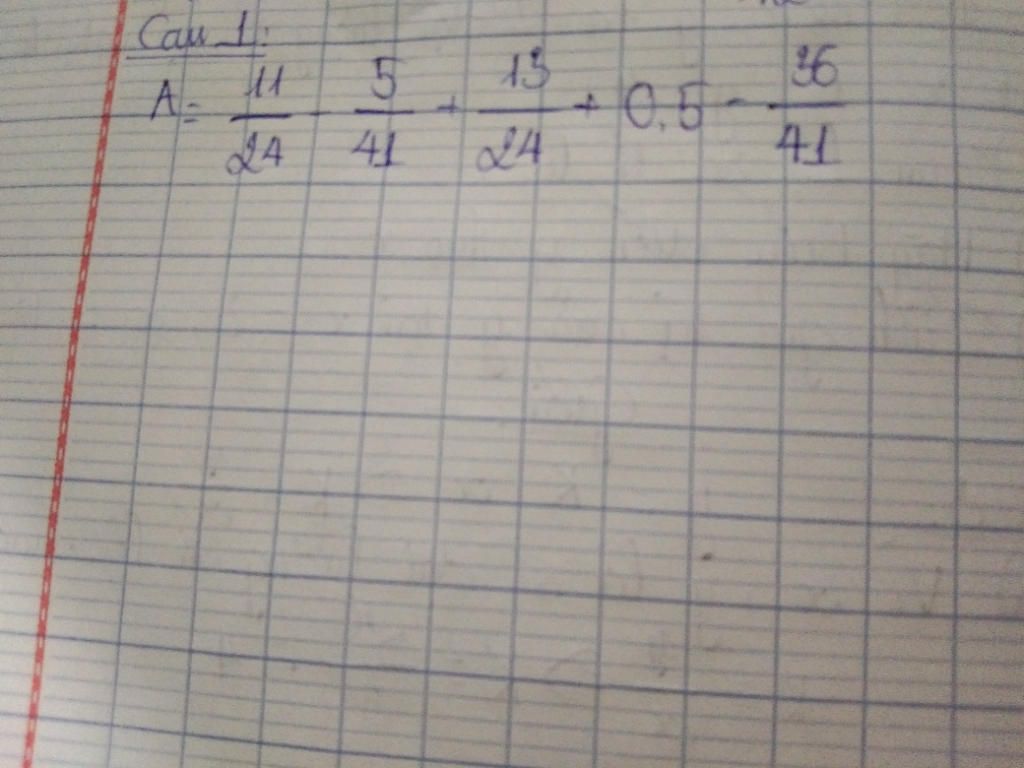 Câu 1:
A = 11/24 - 5/41 + 13/24 + 0,5 - 36/41